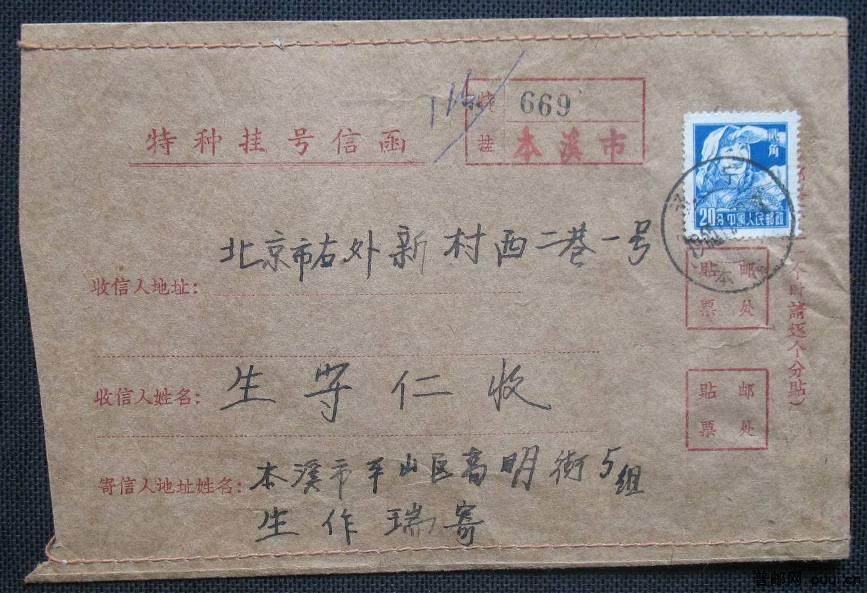 特 669
挂 本溪市
特种挂号信函
116
贰角
20分 中國人民邮政
本
收信人地址: 北京市右外新村西二巷一号
贴 邮
票 处
个时請逐个分貼)
收信人姓名: 生守仁 收
贴 邮
票 处
寄信人地址姓名: 本溪市平山区高明街5组
生作瑞寄
普邮网 puu.cn